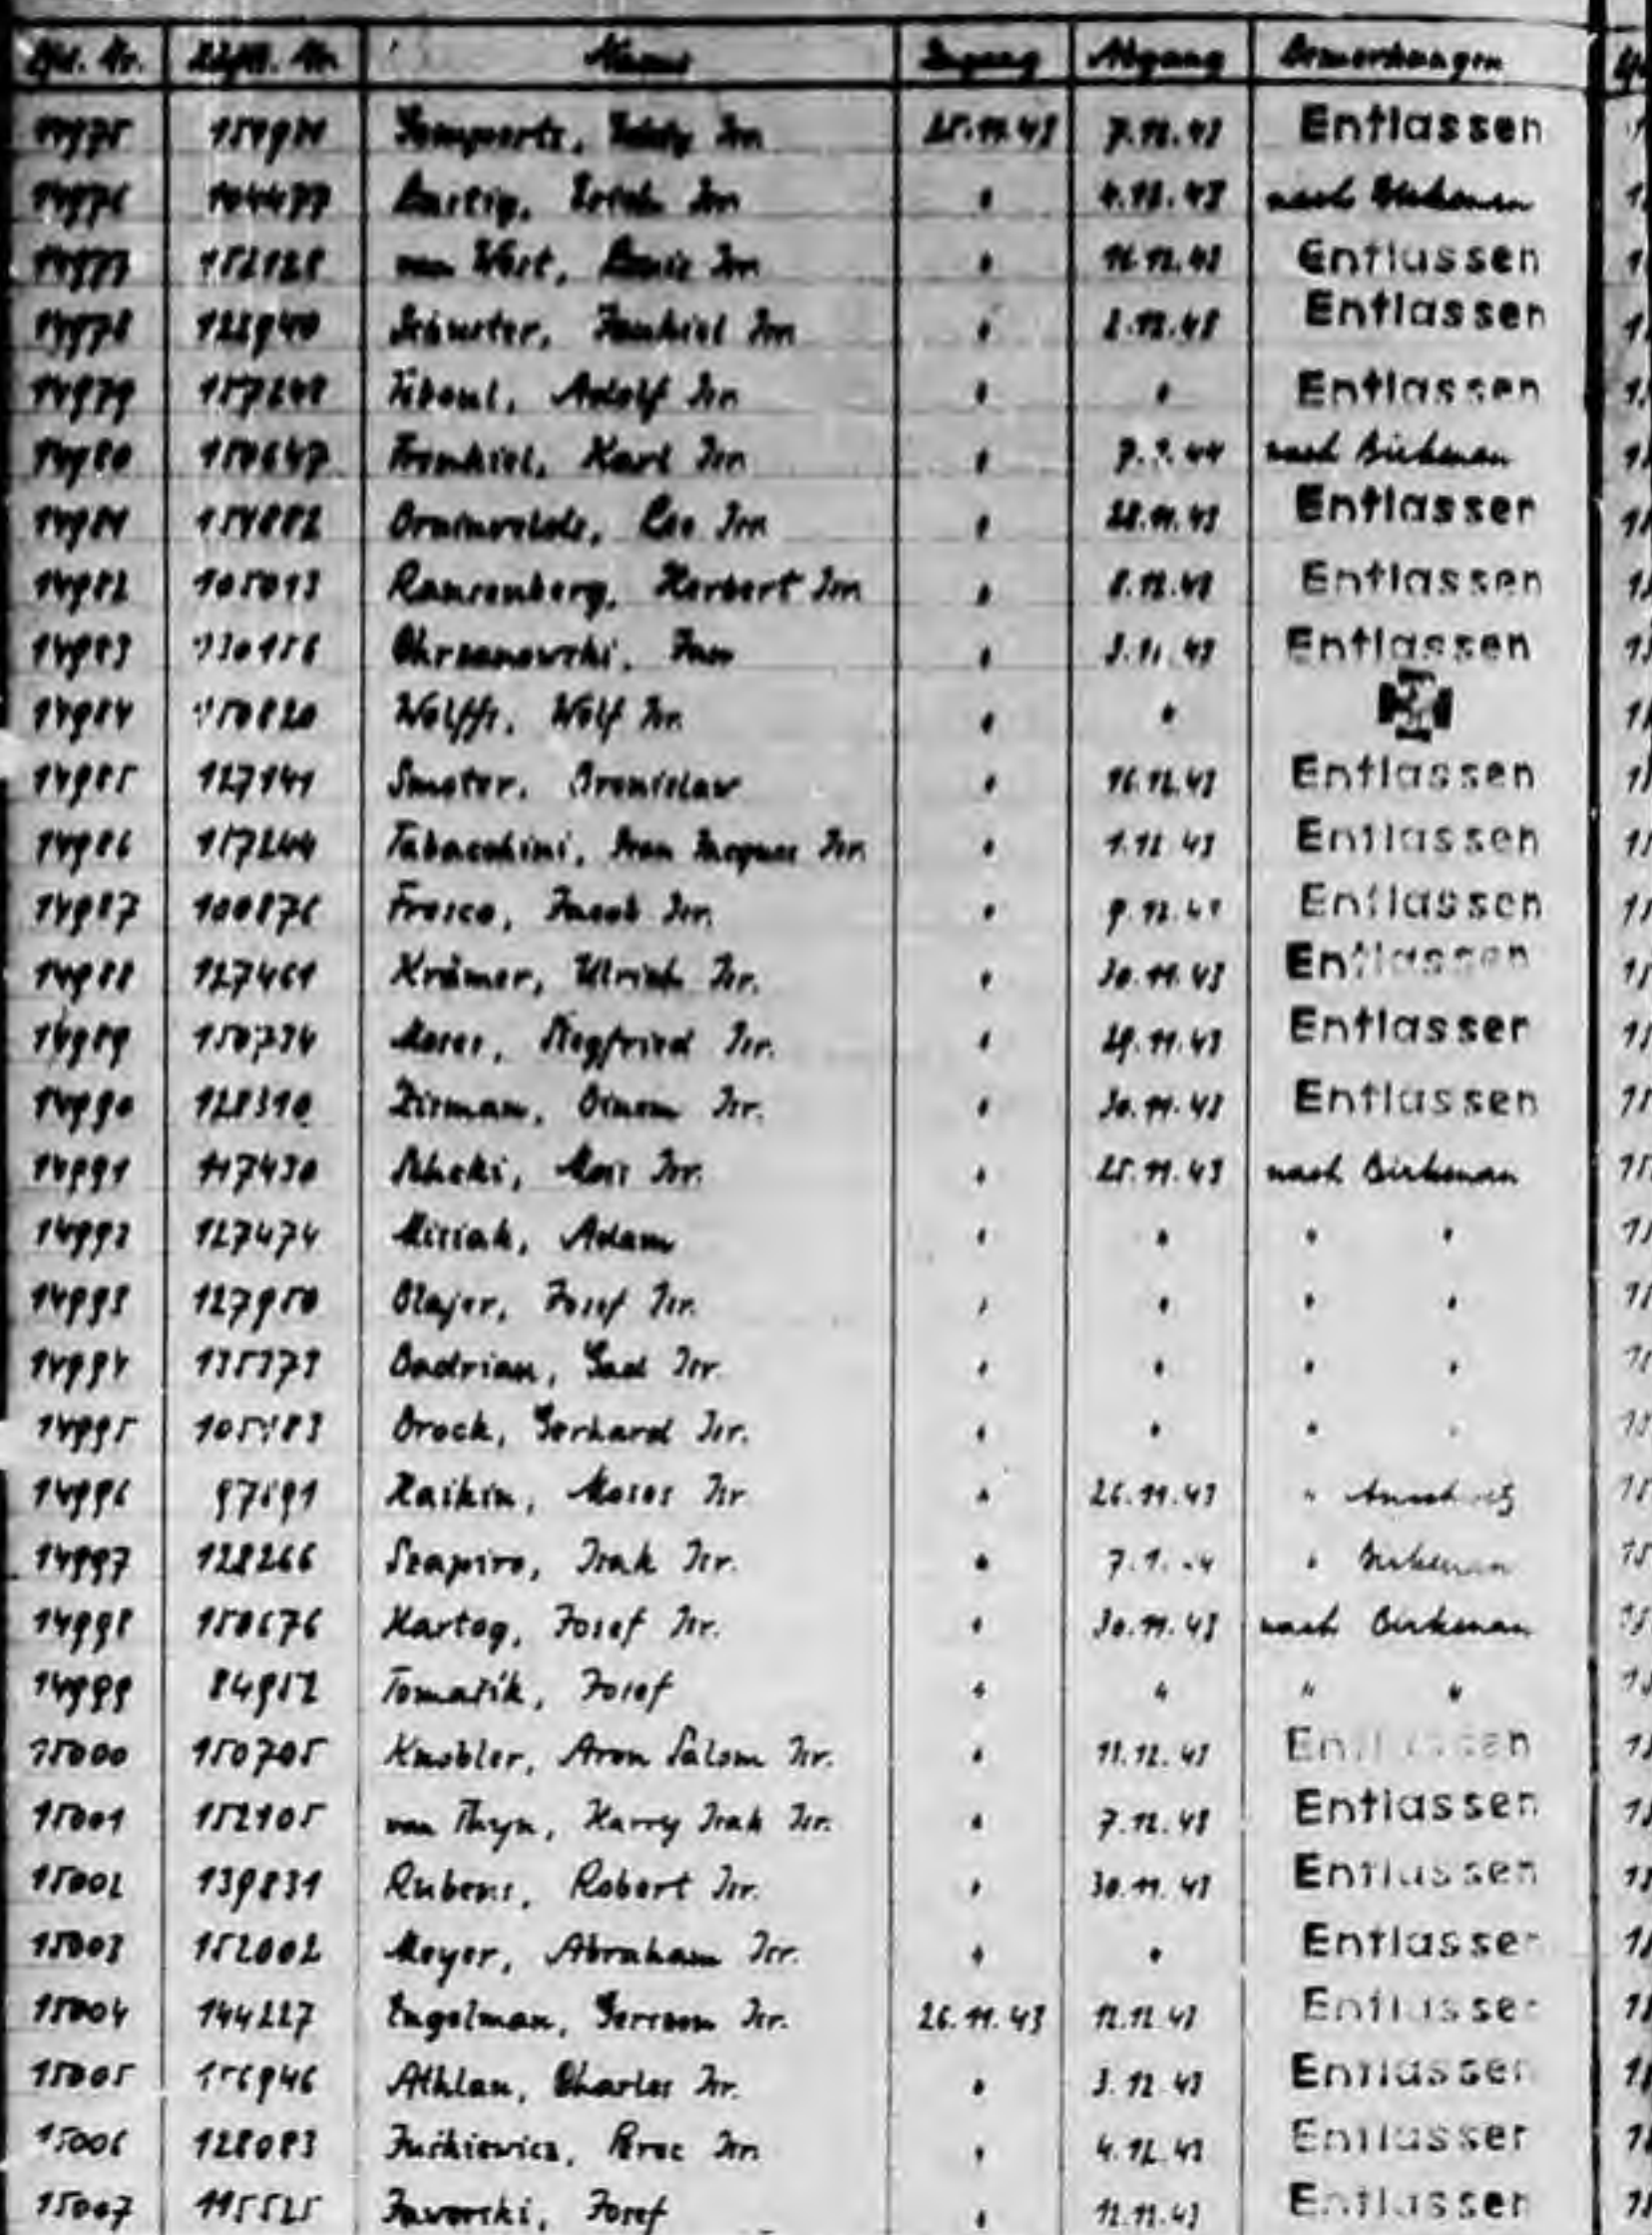 Lfd. Nr. Häftl. Nr. Name Zugang Abgang Bemerkungen
14975 Gompertz, Isr. 25.11.43 7.12.43 Entlassen
14976 104477 Isr. " 4.12.43 nach Birkenau
14977 152128 van West, Isr. " 16.12.43 Entlassen
14978 128940 Schuster, Jankiel Isr. " 2.12.43 Entlassen
14979 157248 Adolf Isr. " " Entlassen
14980 150647 Frenkiel, Karl Isr. " 7.1.44 nach Birkenau
14981 151882 Leo Isr. " 28.11.43 Entlassen
14982 105013 Ransenberg, Herbert Isr. " 8.12.43 Entlassen
14983 Chrzanowski, " Entlassen
14984 150820 Wolffs, Wolf Isr. " "
14985 127141 Smoter, Bronislaw " 16.12.43 Entlassen
14986 157244 Jacques Isr. " 1.12.43 Entlassen
14987 100876 Fresco, Jacob Isr. " 9.12.43 Entlassen
14988 127461 Krämer, Ulrich Isr. " 30.11.43 Entlassen
14989 150734 Moses, Siegfried Isr. " 29.11.43 Entlassen
14990 128310 Zisman, Isr. " 30.11.43 Entlassen
14991 117430 Isr. " 25.11.43 nach Birkenau
14992 127474 Misiak, Adam " " " "
14993 127950 Olajer, Josef Isr. " " " "
14994 135373 Gad Isr. " " " "
14995 Brock, Gerhard Isr. " " " "
14996 Haikin, Moses Isr. " 26.11.43 " Auschwitz
14997 128266 Szapiro, Isak Isr. " 7.1.44 " Birkenau
14998 150676 Hartog, Josef Isr. " 30.11.43 nach Birkenau
14999 84952 Tomašik, Josef " " " "
15000 150705 Knobler, Aron Salom Isr. " 11.12.43 Entlassen
15001 152105 van Thyn, Harry Isak Isr. " 7.12.43 Entlassen
15002 139831 Rubens, Robert Isr. " 30.11.43 Entlassen
15003 152002 Meyer, Abraham Isr. " " Entlassen
15004 144227 Engelman, Gerson Isr. 26.11.43 12.12.43 Entlassen
15005 Athlan, Charles Isr. " 3.12.43 Entlassen
15006 128083 Isr. " 4.12.43 Entlassen
15007 115525 Jaworski, Josef " 12.11.43 Entlassen